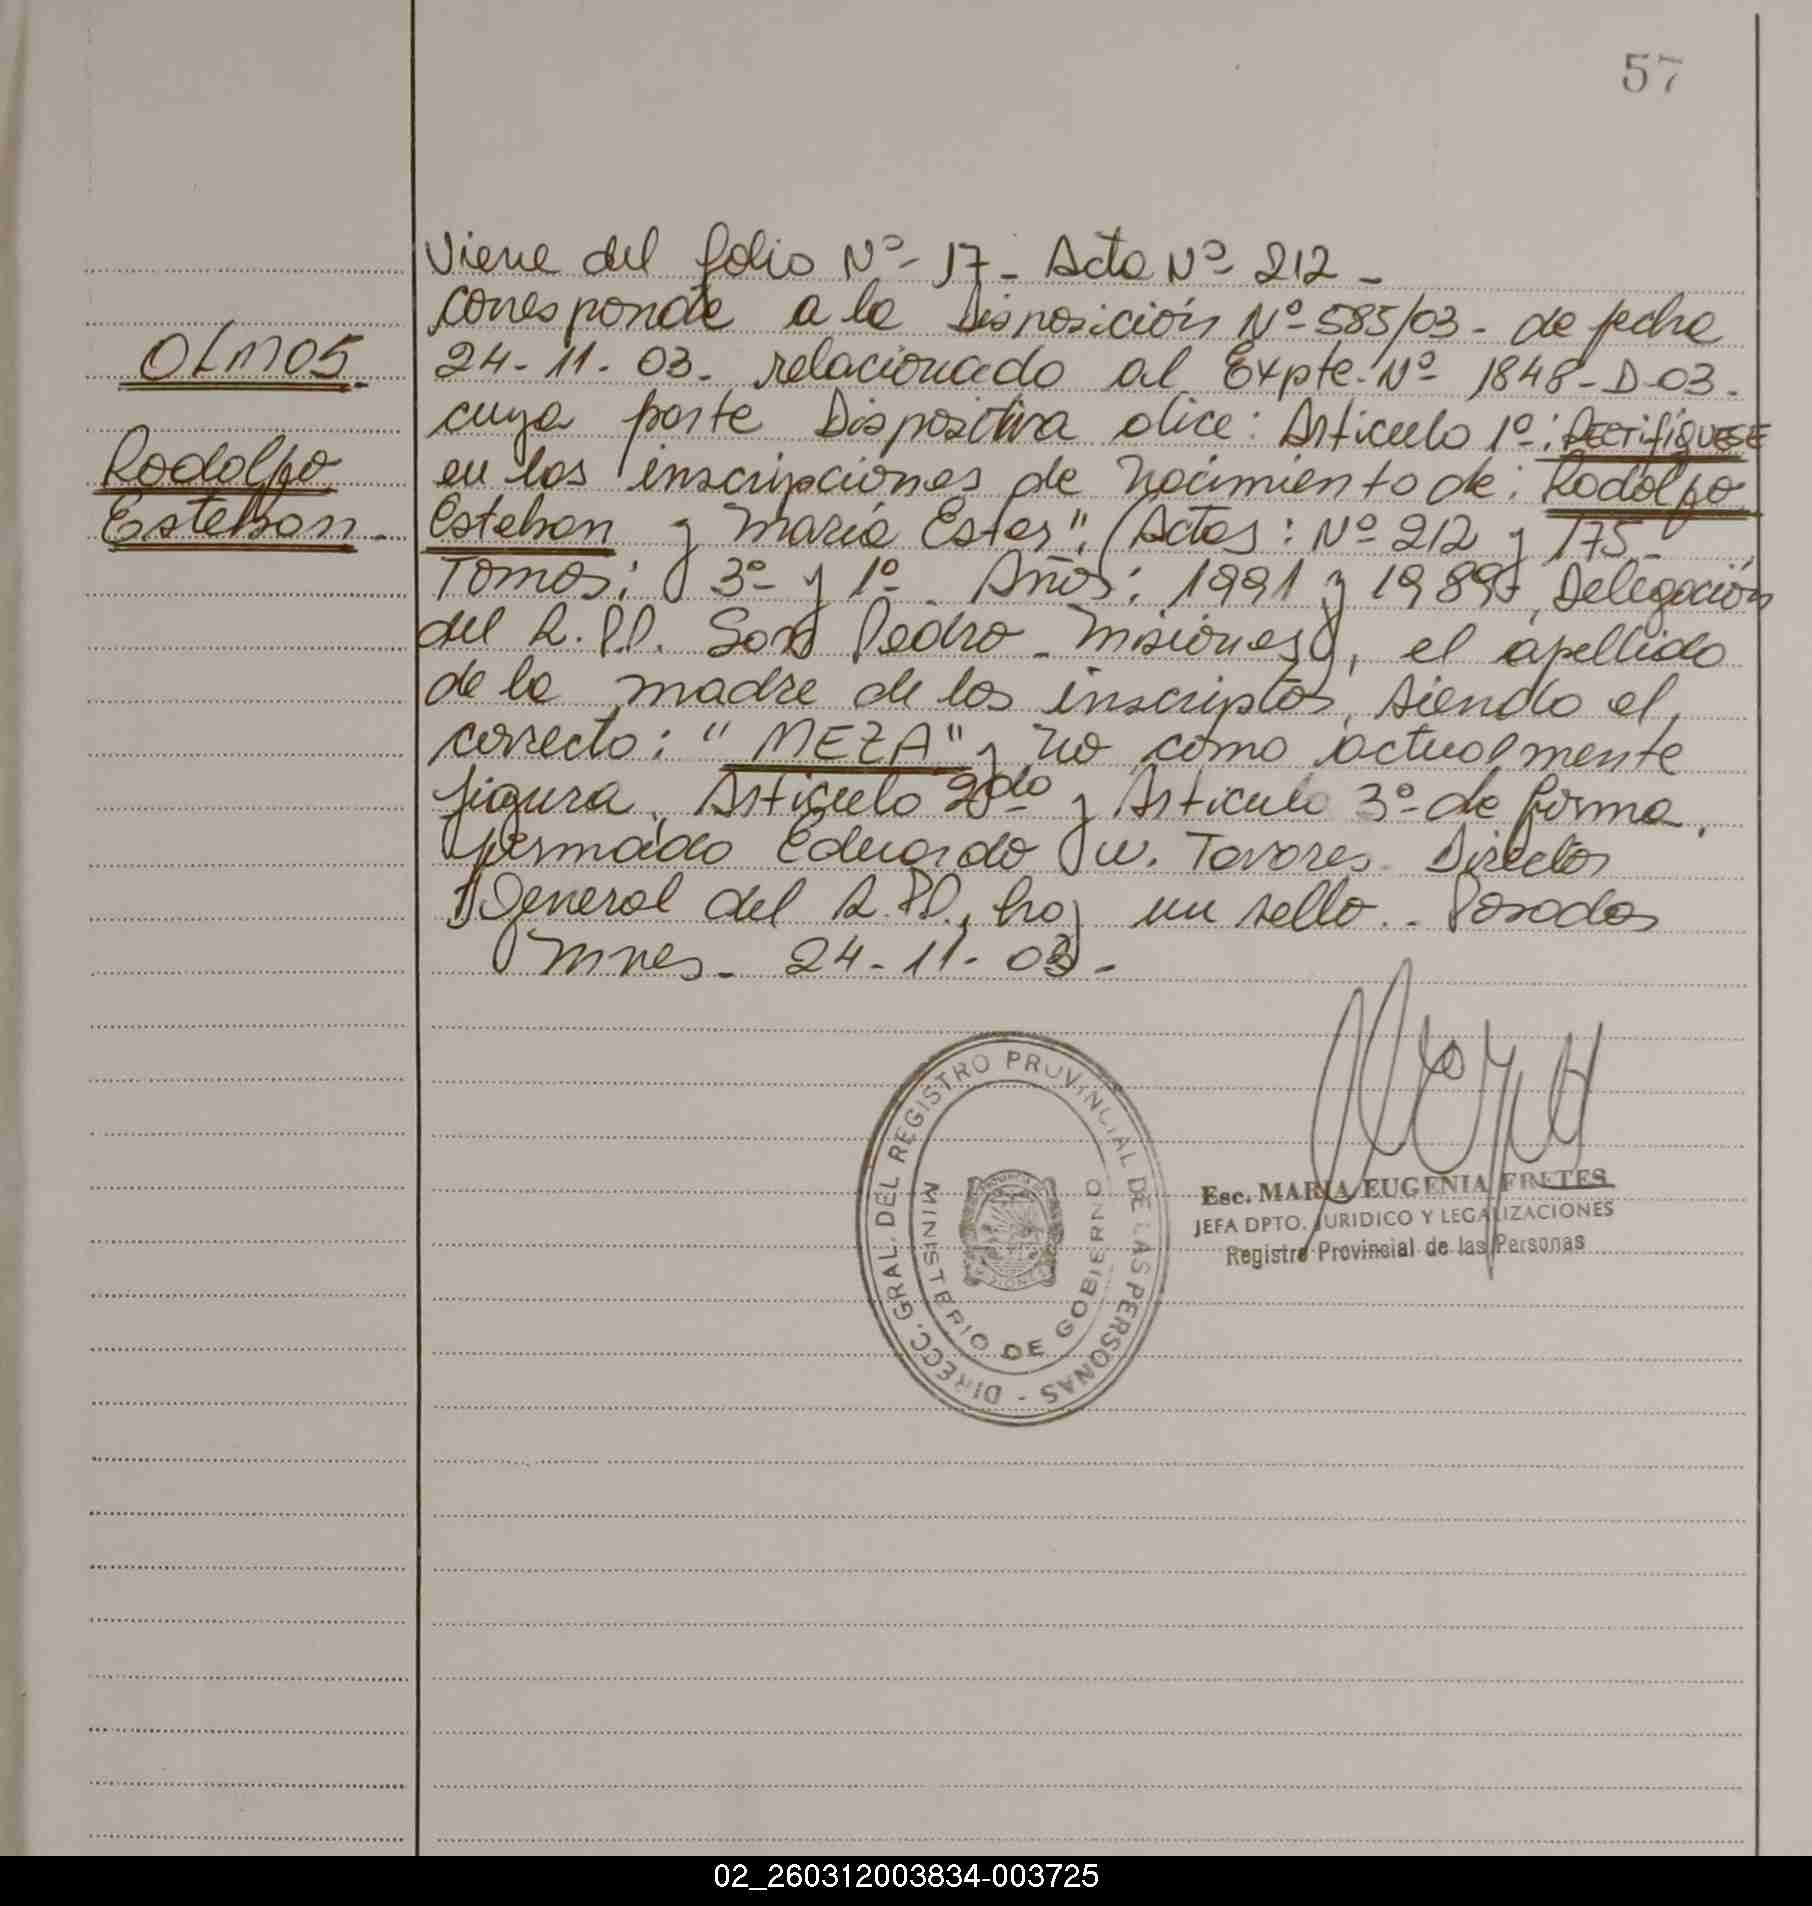 57
Viene del folio Nº- 17- Acta Nº- 212-
corresponde a la Disposición Nº-585/03- de fecha
OLMOS.
24-11-03. relacionado al Expte. Nº- 1848-D-03-
cuya parte Dispositiva dice: Articulo 1º: RECTIFIQUESE
Rodolfo
en las inscripciones de nacimiento de: Rodolfo
Esteban-
Esteban y María Ester", (Actas: Nº 212 y 175-
Tomos: 3º- y 1º- Años: 1991 y 1989-, Delegación
del R.P.P. San Pedro - Misiones), el apellido
de la madre de los inscriptos, siendo el
correcto: "MEZA" y no como actualmente
figura. Articulo 2do y Articulo 3º- de forma.
firmado Eduardo W. Tavares. Director
General del R.P.P., hay un sello.. Posadas
Mnes- 24-11-03-
DIRECC. GRAL. DEL REGISTRO PROVINCIAL DE LAS PERSONAS -
MINISTERIO DE GOBIERNO
Esc. MARIA EUGENIA FRETES
JEFA DPTO. JURIDICO Y LEGALIZACIONES
Registro Provincial de las Personas
02_260312003834-003725